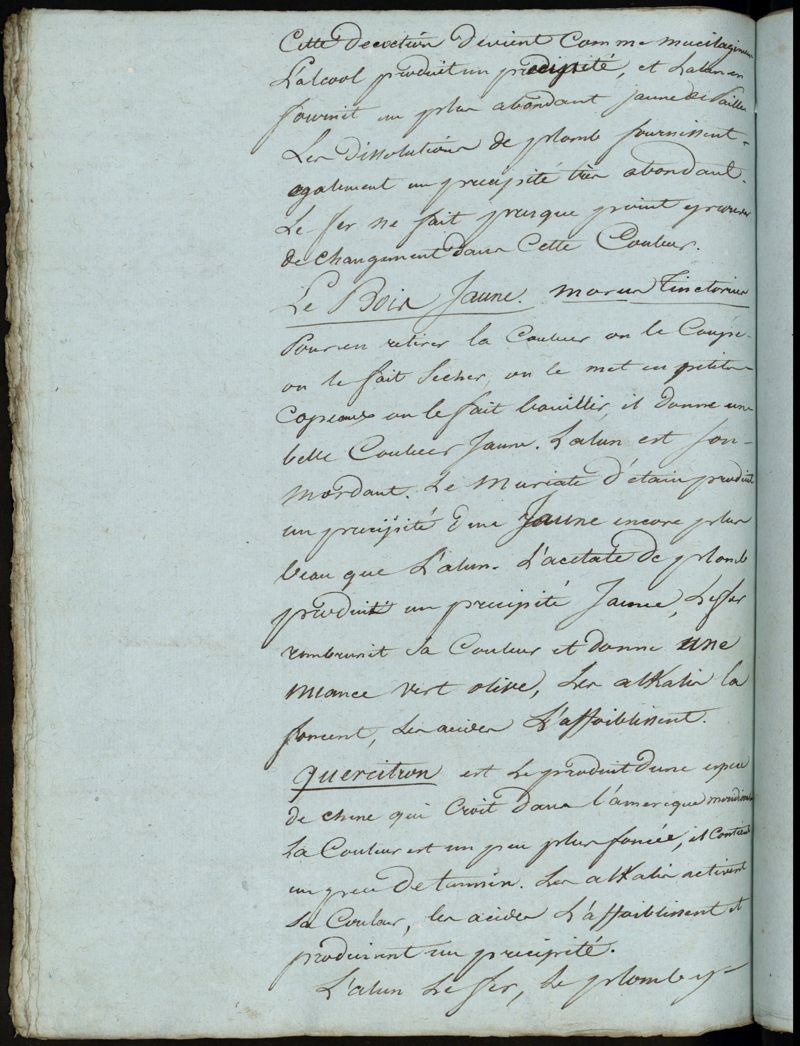 Cette decoction devient Comme mucilagineuse
L'alcool produit un precipité, et L'alun en
fournit un plus abondant jaune de Paille
Les dissolutions de plomb fournissent
egalement un precipité très abondant.
Le fer ne fait presque point eprouver
de changement dans Cette Couleur.
Le Bois Jaune. morus Tinctorius
Pour en retirer la Couleur on le Coupe
on le fait Secher, on le met en petits
Copeaux on le fait bouillir, il donne une
belle Couleur Jaune. L'alun est son
mordant. Le Muriate d'étain produit
un precipité d'un Jaune encore plus
beau que L'alun. L'acetate de plomb
produit un precipité Jaune, Le fer
rembrunit sa Couleur et donne une
nuance vert olive, Les alKalis la
foncent, Les acides L'affoiblissent.
quercitron est Le produit d'une espece
de chene qui Croit dans l'amerique meridionale
La Couleur est un peu plus foncée, il contient
un peu de tannin. Les alKalis activent
sa Couleur, les acides L'affoiblissent et
produisent un precipité.
L'alun Le fer, Le plomb y